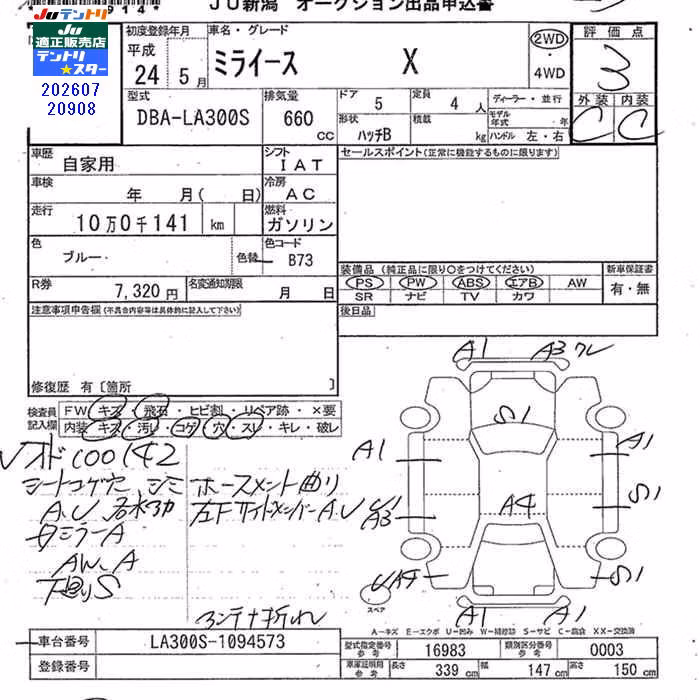 JU新潟 オークション出品申込書
Juテントリ
Ju
適正販売店
テントリ
★スター
202607
20908
初度登録年月
平成
24 5 月
車名・グレード
ミライース X
2WD
・
4WD
評価点
3
外装 内装
C C
型式
DBA-LA300S
排気量
660 CC
ドア 5
定員 4 人
形状 ハッチB
積載 kg
ディーラー・並行
モデル年式 年
ハンドル 左・右
車歴
自家用
シフト
IAT
セールスポイント(正常に機能するものに限ります)
車検
年 月( 日)
冷房
AC
走行
10万0千141 km
燃料
ガソリン
色
ブルー
色替
色コード
B73
R券
7,320 円
名変通知期限
月 日
装備品 (純正品に限り○をつけてください)
PS PW ABS エアB AW
SR ナビ TV カワ
新車保証書
有・無
注意事項申告欄(不具合内容等は具体的に記入して下さい)
後日品
修復歴 有〔箇所 〕
検査員
記入欄
FW キズ・飛石・ヒビ割・リペア跡・×要
内装 キズ・汚レ・コゲ・穴・スレ・キレ・破レ
オド100142
シートコゲ穴 シミ ホースメント曲り
A.U
左Fサイドメンバー A.U
ミラーA
AW、A
下廻りS
アンテナ折れ
A1 A3 ワレ
S1
A1
A1
A4
S1
U1
A3
UA4
S1
A1 A1
スペア
A-キズ E-エクボ U-凹み W-補修跡 S-サビ C-腐食 XX-交換済
車台番号
LA300S-1094573
登録番号
型式指定番号
参考
16983
類別区分番号
参考
0003
車庫証明用
参考
長さ 339 cm
幅 147 cm
高さ 150 cm